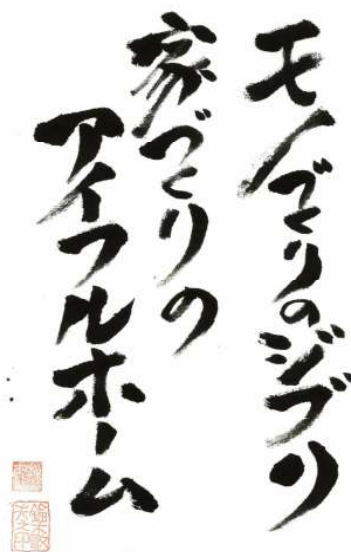 モノづくりのジブリ
家づくりの
アイフルホーム